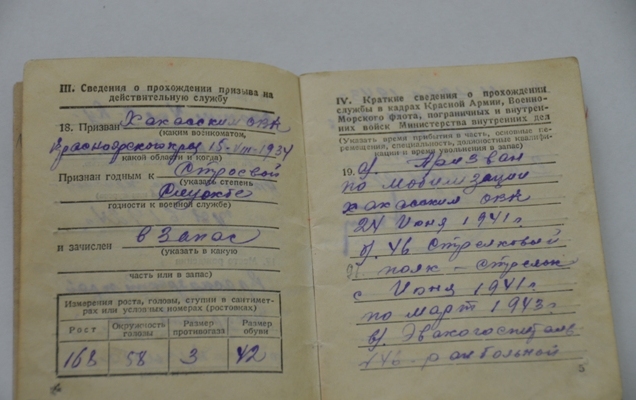 III. Сведения о прохождении призыва на
действительную службу
18. Призван Хакасским ОВК
(каким военкоматом,
Красноярского края 15-VIII-1934
какой области и когда)
Признан годным к Строевой
(указать степень
Службе
годности к военной службе)
и зачислен в Запас
(указать в какую
часть или в запас)
Измерения роста, головы, ступни в сантимет-
рах или условных номерах (ростовках)
Рост Окружность головы Размер противогаза Размер обуви
168 58 3 42
IV. Краткие сведения о прохождении
службы в кадрах Красной Армии, Военно-
Морского флота, пограничных и внутрен-
них войск Министерства внутренних дел
(Указать время прибытия в часть, основные пе-
ремещения, специальность, должностные квалифи-
кации и время увольнения в запас)
19. а) Призван
по мобилизации
Хакасским ОВК
24 Июня 1941г
б) 46 Стрелковый
полк - стрелок
с Июня 1941г
по март 1943г
в) Эвакогоспиталь
ранбольной
5